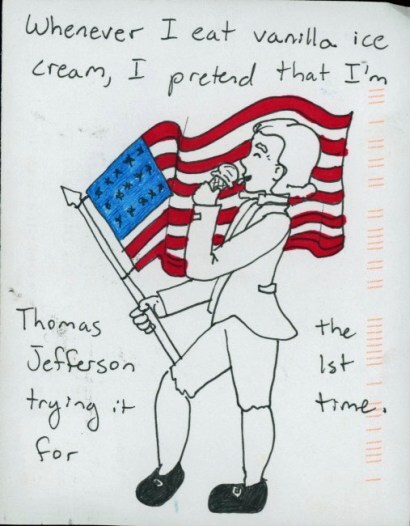 Whenever I eat vanilla ice
cream, I pretend that I'm
Thomas
Jefferson
trying it
for
the
1st
time.